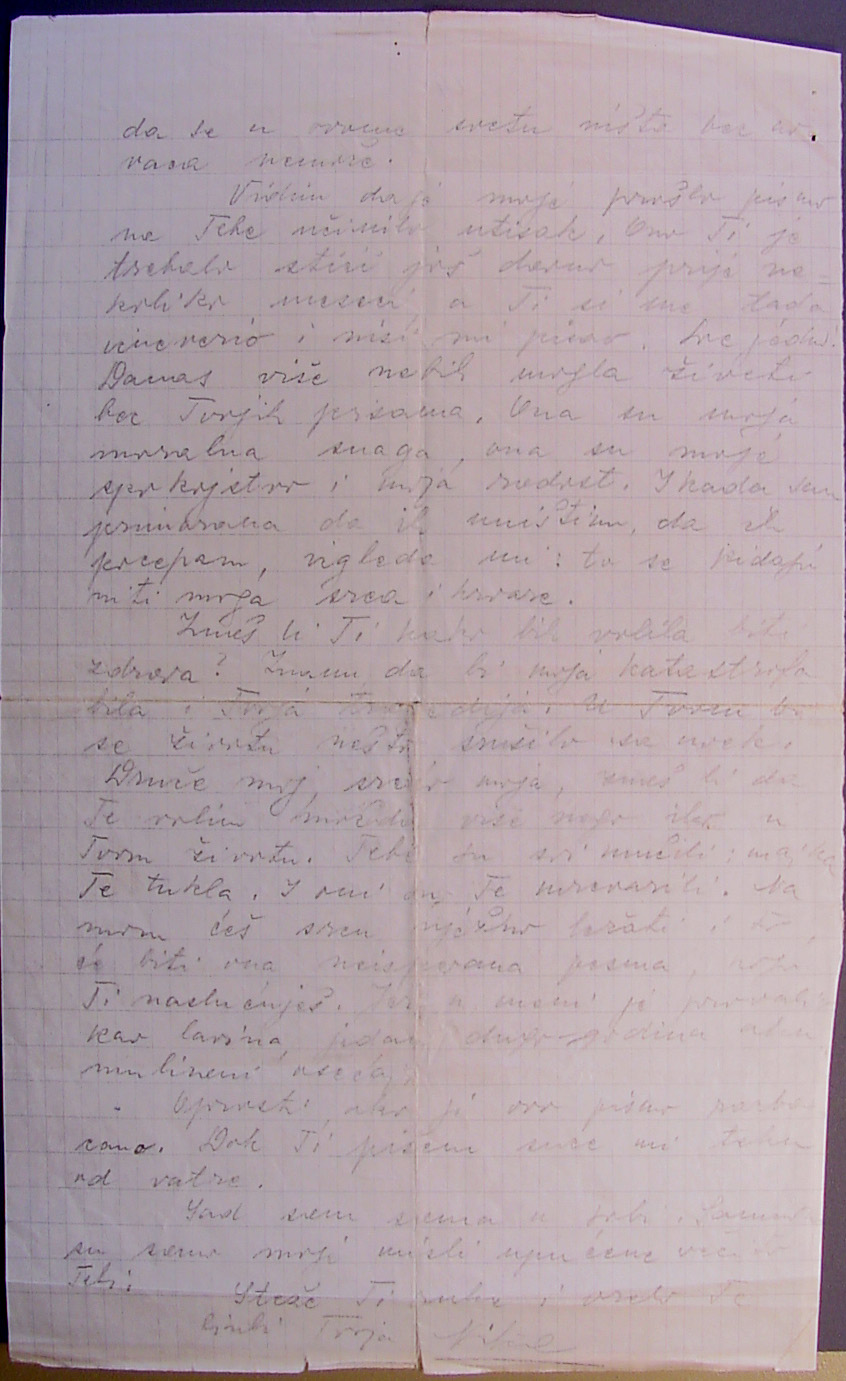 da se u ovome svetu ništa bez
vara nemože.
Vidim da je moje prošlo pismo
na Tebe učinilo utisak. Ono Ti je
trebalo stići još davno prije ne=
koliko meseci, a Ti si me tada
i nisi mi pisao. Sve jedno!
Danas više nebih mogla živeti
bez Tvojih pisama. Ona su moja
moralna snaga, ona su moje
spokojstvo i moja radost. I kada sam
primorana da ih uništim, da ih
pocepam, izgleda mi: to se kidaju
niti moga srca i krvare.
Znaš li Ti kako bih volila biti
zdrava? Znam da bi moja katastrofa
bila i Tvoja tragedija. U Tvom bi
se životu nešto srušilo za uvek.
Druže moj, srećo moja, znaš li da
Te volim možda više nego itko u
Tvom životu. Tebe su svi mučili: majka
Te tukla. I oni su Te mrcvarili. Na
mom ćeš srcu nježno ležati i to
će biti ona neispevana pesma, koju
Ti naslućuješ. Jer u meni je provalio
kao lavina, jedan dugo godina
osećaj.
Oprosti, ako je ovo pismo razba=
cano. Dok Ti pišem suze mi teku
od vatre.
Sad sam sama u sobi.
su samo moje misli upućene
Tebi.
Steže Ti ruke i
ljubi Tvoja